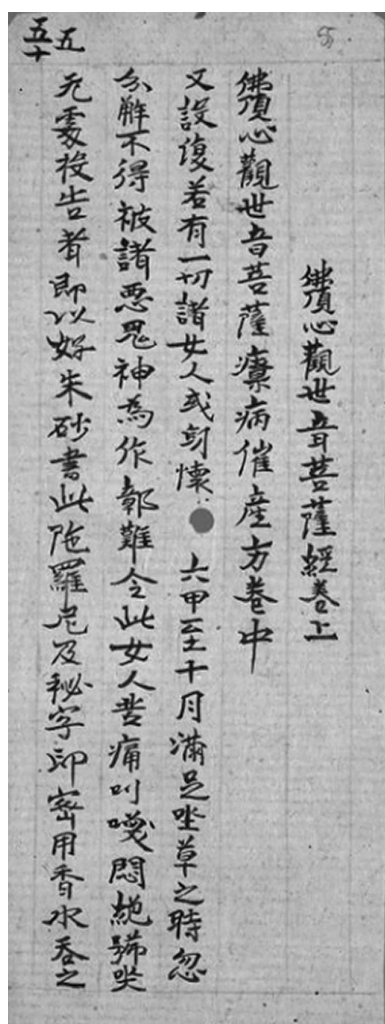 佛頂心觀世音菩薩經卷上
佛頂心觀世音菩薩療病催產方卷中
又設復若有一切諸女人或身懷六甲至十月滿足坐草之時忽
分解不得被諸惡鬼神為作鄣難令此女人苦痛叫喚悶絕號哭
无處投告者即以好朱砂書此陁羅尼及秘字印密用香水吞之
五
五十